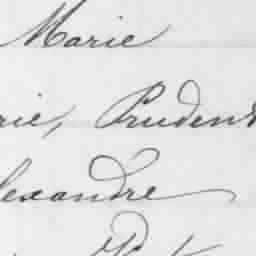 Marie
rie, Pruden
lexandre